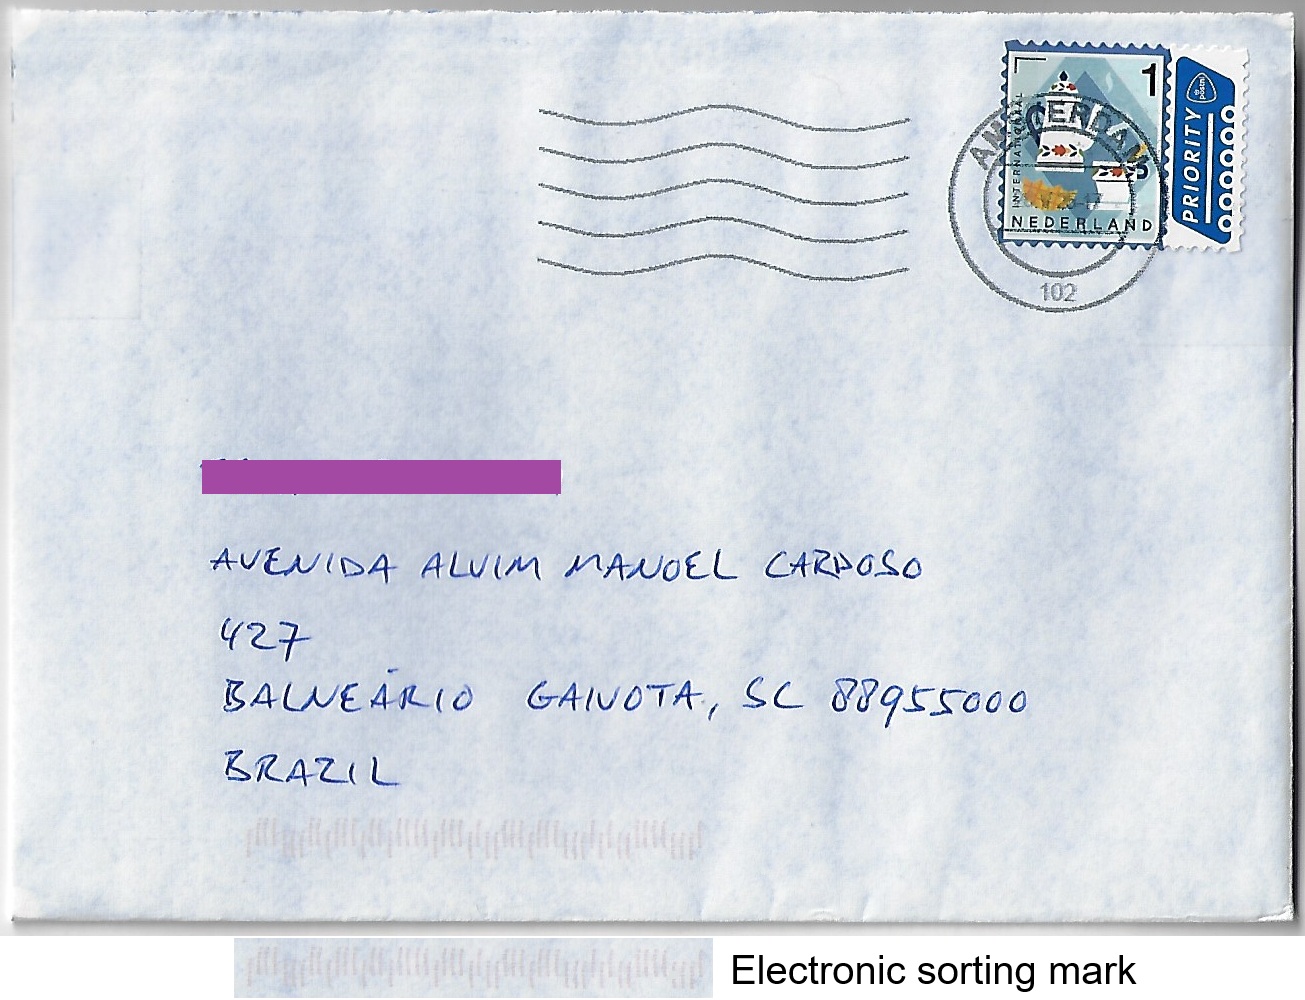 1
INTERNATIONAAL
NEDERLAND
PRIORITY
postnl
AMSTERDAM
102
AVENIDA ALVIM MANOEL CARDOSO
427
BALNEÁRIO GAIVOTA, SC 88955000
BRAZIL
Electronic sorting mark